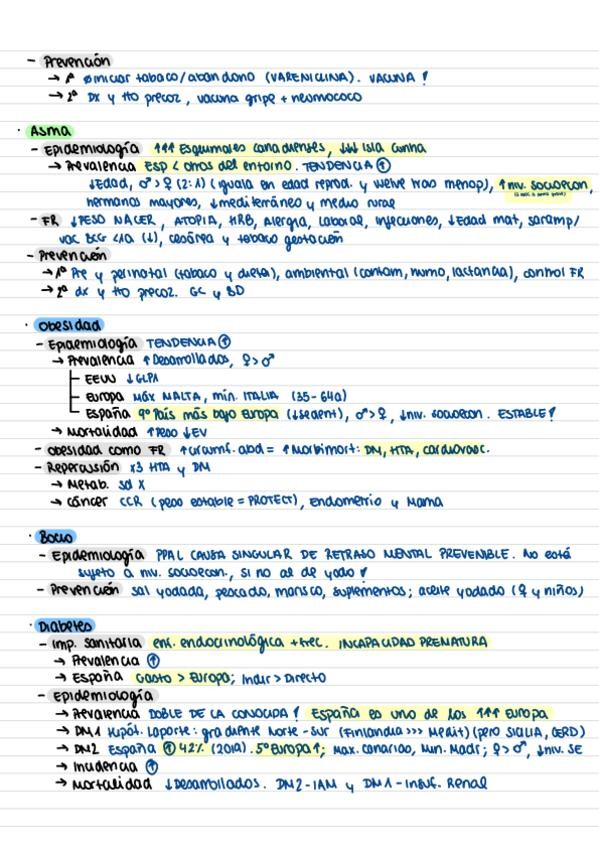 - Prevención
→ 1ª ∅iniciar tabaco/abandono (VARENICLINA). VACUNA!
→ 2ª DX y tto precoz, vacuna gripe + neumococo
· ASMA
- Epidemiología ↑↑↑ Esquimales canadienses, ↓↓↓ Isla Cunha
→ Prevalencia ESP < otros del entorno. TENDENCIA ↑
↓Edad, ♂>♀ (2:1) (iguala en edad reprod. y vuelve tras menop), ↑niv. socioecon,
hermanos mayores, ↓mediterráneo y medio rural
- FR ↓PESO NACER, ATOPIA, HRB, Alergia, Laboral, infecciones, ↓Edad mat, saramp/
vac BCG <1a (↓), cesárea y tabaco gestación
- Prevención
→ 1ª Pre y perinatal (tabaco y dieta), ambiental (contam, humo, lactancia), control FR
→ 2ª dx y tto precoz. GC y BD
· Obesidad
- Epidemiología TENDENCIA ↑
→ Prevalencia ↑Desarrollados, ♀>♂
EEUU ↓GLPA
Europa MÁX MALTA, mín. ITALIA (35-64a)
España 9º País más bajo Europa (↓sedent), ♂>♀, ↓niv. socioecon. ESTABLE!
→ Mortalidad ↑Peso ↓EV
- Obesidad como FR ↑circunf. abd = ↑Morbimort: DM, HTA, cardiovasc.
- Repercusión x3 HTA y DM
→ Metab. sd X
→ Cáncer CCR (peso estable = PROTECT), Endometrio y Mama
· Bocio
- Epidemiología PPAL CAUSA SINGULAR DE RETRASO MENTAL PREVENIBLE. No está
sujeto a niv. socioecon., si no al de yodo!
- Prevención sal yodada, pescado, marisco, suplementos; aceite yodado (♀ y niños)
· Diabetes
- Imp. sanitaria enf. endocrinológica +frec. INCAPACIDAD PREMATURA
→ Prevalencia ↑
→ España Gasto > Europa; Indir > Directo
- Epidemiología
→ Prevalencia DOBLE DE LA CONOCIDA! España es uno de los ↑↑↑ Europa
→ DM1 Hipót. Laporte: gradiente Norte-Sur (Finlandia >>> Medit) (pero SICILIA, CERD)
→ DM2 España ↑ 42% (2019). 5º Europa↑; Max. canarias, Min. Madr; ♀>♂, ↓niv. SE
→ Incidencia ↑
→ Mortalidad ↓Desarrollados. DM2-IAM y DM1-Insuf. Renal